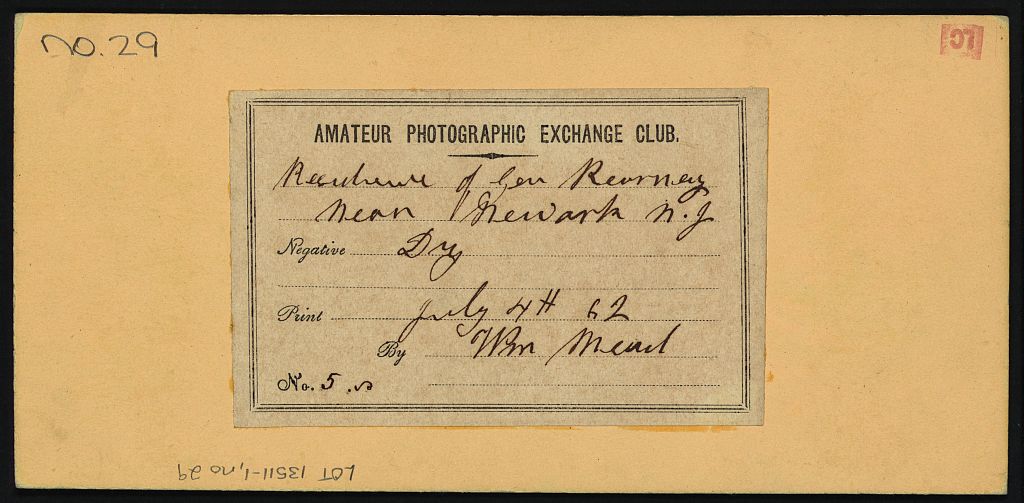 no. 29
LC
AMATEUR PHOTOGRAPHIC EXCHANGE CLUB.
Residence of Gen Kearney
Near Newark N. J
Negative Dry
Print July 4th 62
By Wm Mead
No. 5.
LOT 13511-1, no 29